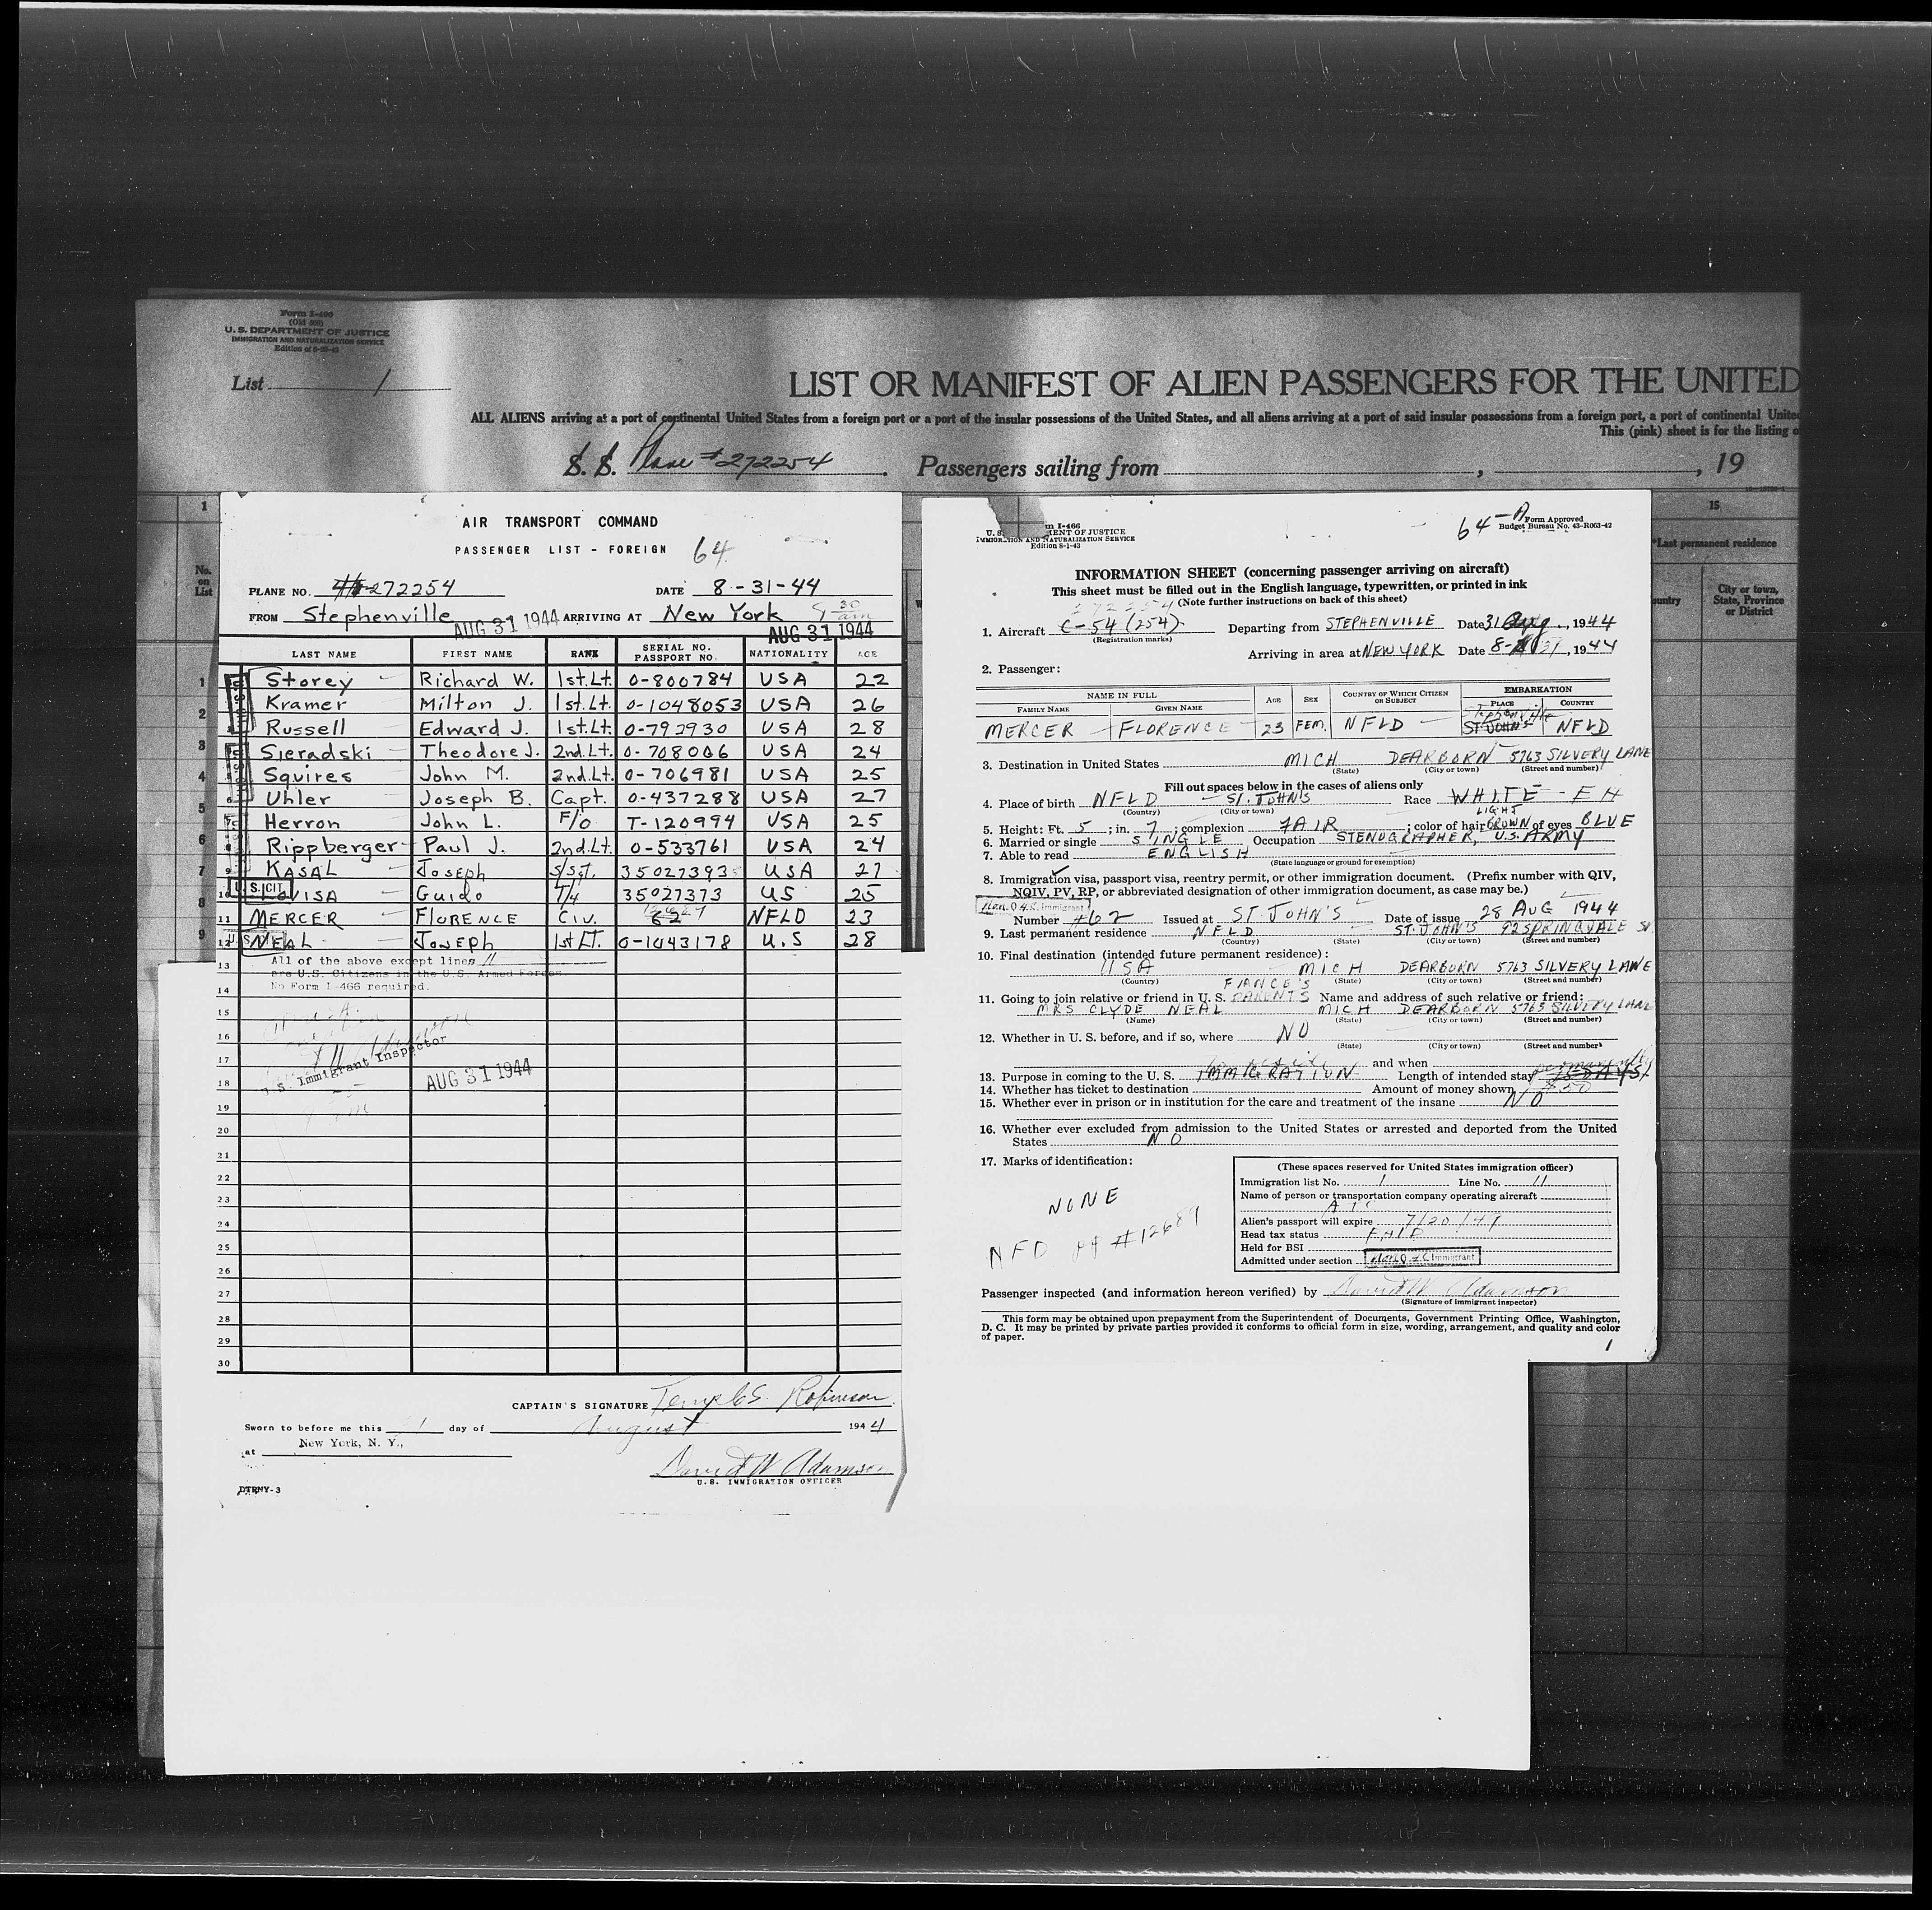 Form I-466
(Old 500)
U. S. DEPARTMENT OF JUSTICE
IMMIGRATION AND NATURALIZATION SERVICE
List 1
LIST OR MANIFEST OF ALIEN PASSENGERS FOR THE UNITED
ALL ALIENS arriving at a port of continental United States from a foreign port or a port of the insular possessions of the United States, and all aliens arriving at a port of said insular possessions from a foreign port, a port of continental United
This (pink) sheet is for the listing o
S. S. Plane #272254 . Passengers sailing from , , 19
1
No. on List
1
2
3
4
5
6
7
8
9
15
*Last permanent residence
ountry
City or town, State, Province or District
AIR TRANSPORT COMMAND
PASSENGER LIST - FOREIGN 64
PLANE NO. 272254 DATE 8-31-44
FROM Stephenville AUG 31 1944 ARRIVING AT New York 9 30 am
AUG 31 1944
LAST NAME FIRST NAME RANK SERIAL NO. PASSPORT NO. NATIONALITY AGE
Storey Richard W. 1st.Lt. 0-800784 USA 22
Kramer Milton J. 1st.Lt. 0-1048053 USA 26
Russell Edward J. 1st.Lt. 0-792930 USA 28
Sieradski Theodore J. 2nd.Lt. 0-708006 USA 24
Squires John M. 2nd.Lt. 0-706981 USA 25
6 Uhler Joseph B. Capt. 0-437288 USA 27
7 Herron John L. F/O T-120994 USA 25
8 Rippberger Paul J. 2nd.Lt. 0-533761 USA 24
9 KASAL Joseph S/Sgt. 35027393 USA 27
10 U.S. CIT. VISA Guido T/4 35027373 US 25
11 MERCER FLORENCE Civ. 62 NFLD 23
12 U.S. NEAL Joseph 1st LT. 0-1043178 U.S 28
13 All of the above except lines 11
are U.S. Citizens in the U.S. Armed Forces.
14 No Form I-466 required.
15
16
17 U.S. Immigrant Inspector
18 AUG 31 1944
19
20
21
22
23
24
25
26
27
28
29
30
CAPTAIN'S SIGNATURE Temple S. Robinson
Sworn to before me this 31 day of August 194 4
at New York, N. Y.,
David W Adamson
U.S. IMMIGRATION OFFICER
DTRNY-3
m I-466
U. S. MENT OF JUSTICE
IMMIGRATION AND NATURALIZATION SERVICE
Edition 8-1-43
64-A
Form Approved
Budget Bureau No. 43-R063-42
INFORMATION SHEET (concerning passenger arriving on aircraft)
This sheet must be filled out in the English language, typewritten, or printed in ink
(Note further instructions on back of this sheet)
272254
1. Aircraft C-54 (254) Departing from STEPHENVILLE Date 31 Aug , 1944
(Registration marks)
Arriving in area at NEW YORK Date 8-31 , 1944
2. Passenger:
NAME IN FULL AGE SEX COUNTRY OF WHICH CITIZEN OR SUBJECT EMBARKATION
FAMILY NAME GIVEN NAME PLACE COUNTRY
Stephenville
MERCER FLORENCE 23 FEM. NFLD ST JOHN'S NFLD
3. Destination in United States MICH DEARBORN 5763 SILVERY LANE
(State) (City or town) (Street and number)
Fill out spaces below in the cases of aliens only
4. Place of birth NFLD ST. JOHN'S Race WHITE - EH
(Country) (City or town)
LIGHT
5. Height: Ft. 5 ; in. 7 ; complexion FAIR ; color of hair BROWN of eyes BLUE
6. Married or single SINGLE Occupation STENOGRAPHER, U.S. ARMY
7. Able to read ENGLISH
(State language or ground for exemption)
8. Immigration visa, passport visa, reentry permit, or other immigration document. (Prefix number with QIV,
NQIV, PV, RP, or abbreviated designation of other immigration document, as case may be.)
Non Q. I. Immigrant
Number #62 Issued at ST. JOHN'S Date of issue 28 AUG 1944
9. Last permanent residence NFLD ST. JOHN'S 92 SPRINGDALE ST
(Country) (State) (City or town) (Street and number)
10. Final destination (intended future permanent residence):
USA MICH DEARBORN 5763 SILVERY LANE
(Country) (State) (City or town) (Street and number)
FIANCE'S
11. Going to join relative or friend in U. S. PARENTS Name and address of such relative or friend:
MRS CLYDE NEAL MICH DEARBORN 5763 SILVERY LANE
(Name) (State) (City or town) (Street and number)
12. Whether in U. S. before, and if so, where NO
(State) (City or town) (Street and number)
and when
permanently
13. Purpose in coming to the U. S. IMMIGRATION Length of intended stay 15 DAYS
14. Whether has ticket to destination Amount of money shown $50
15. Whether ever in prison or in institution for the care and treatment of the insane NO
16. Whether ever excluded from admission to the United States or arrested and deported from the United
States NO
17. Marks of identification:
NONE
NFD pp #12689
(These spaces reserved for United States immigration officer)
Immigration list No. 1 Line No. 11
Name of person or transportation company operating aircraft
ATC
Alien's passport will expire 7/20/49
Head tax status PAID
Held for BSI
Admitted under section Non Q. I. Immigrant
Passenger inspected (and information hereon verified) by David W Adamson
(Signature of immigrant inspector)
This form may be obtained upon prepayment from the Superintendent of Documents, Government Printing Office, Washington,
D. C. It may be printed by private parties provided it conforms to official form in size, wording, arrangement, and quality and color
of paper.
1